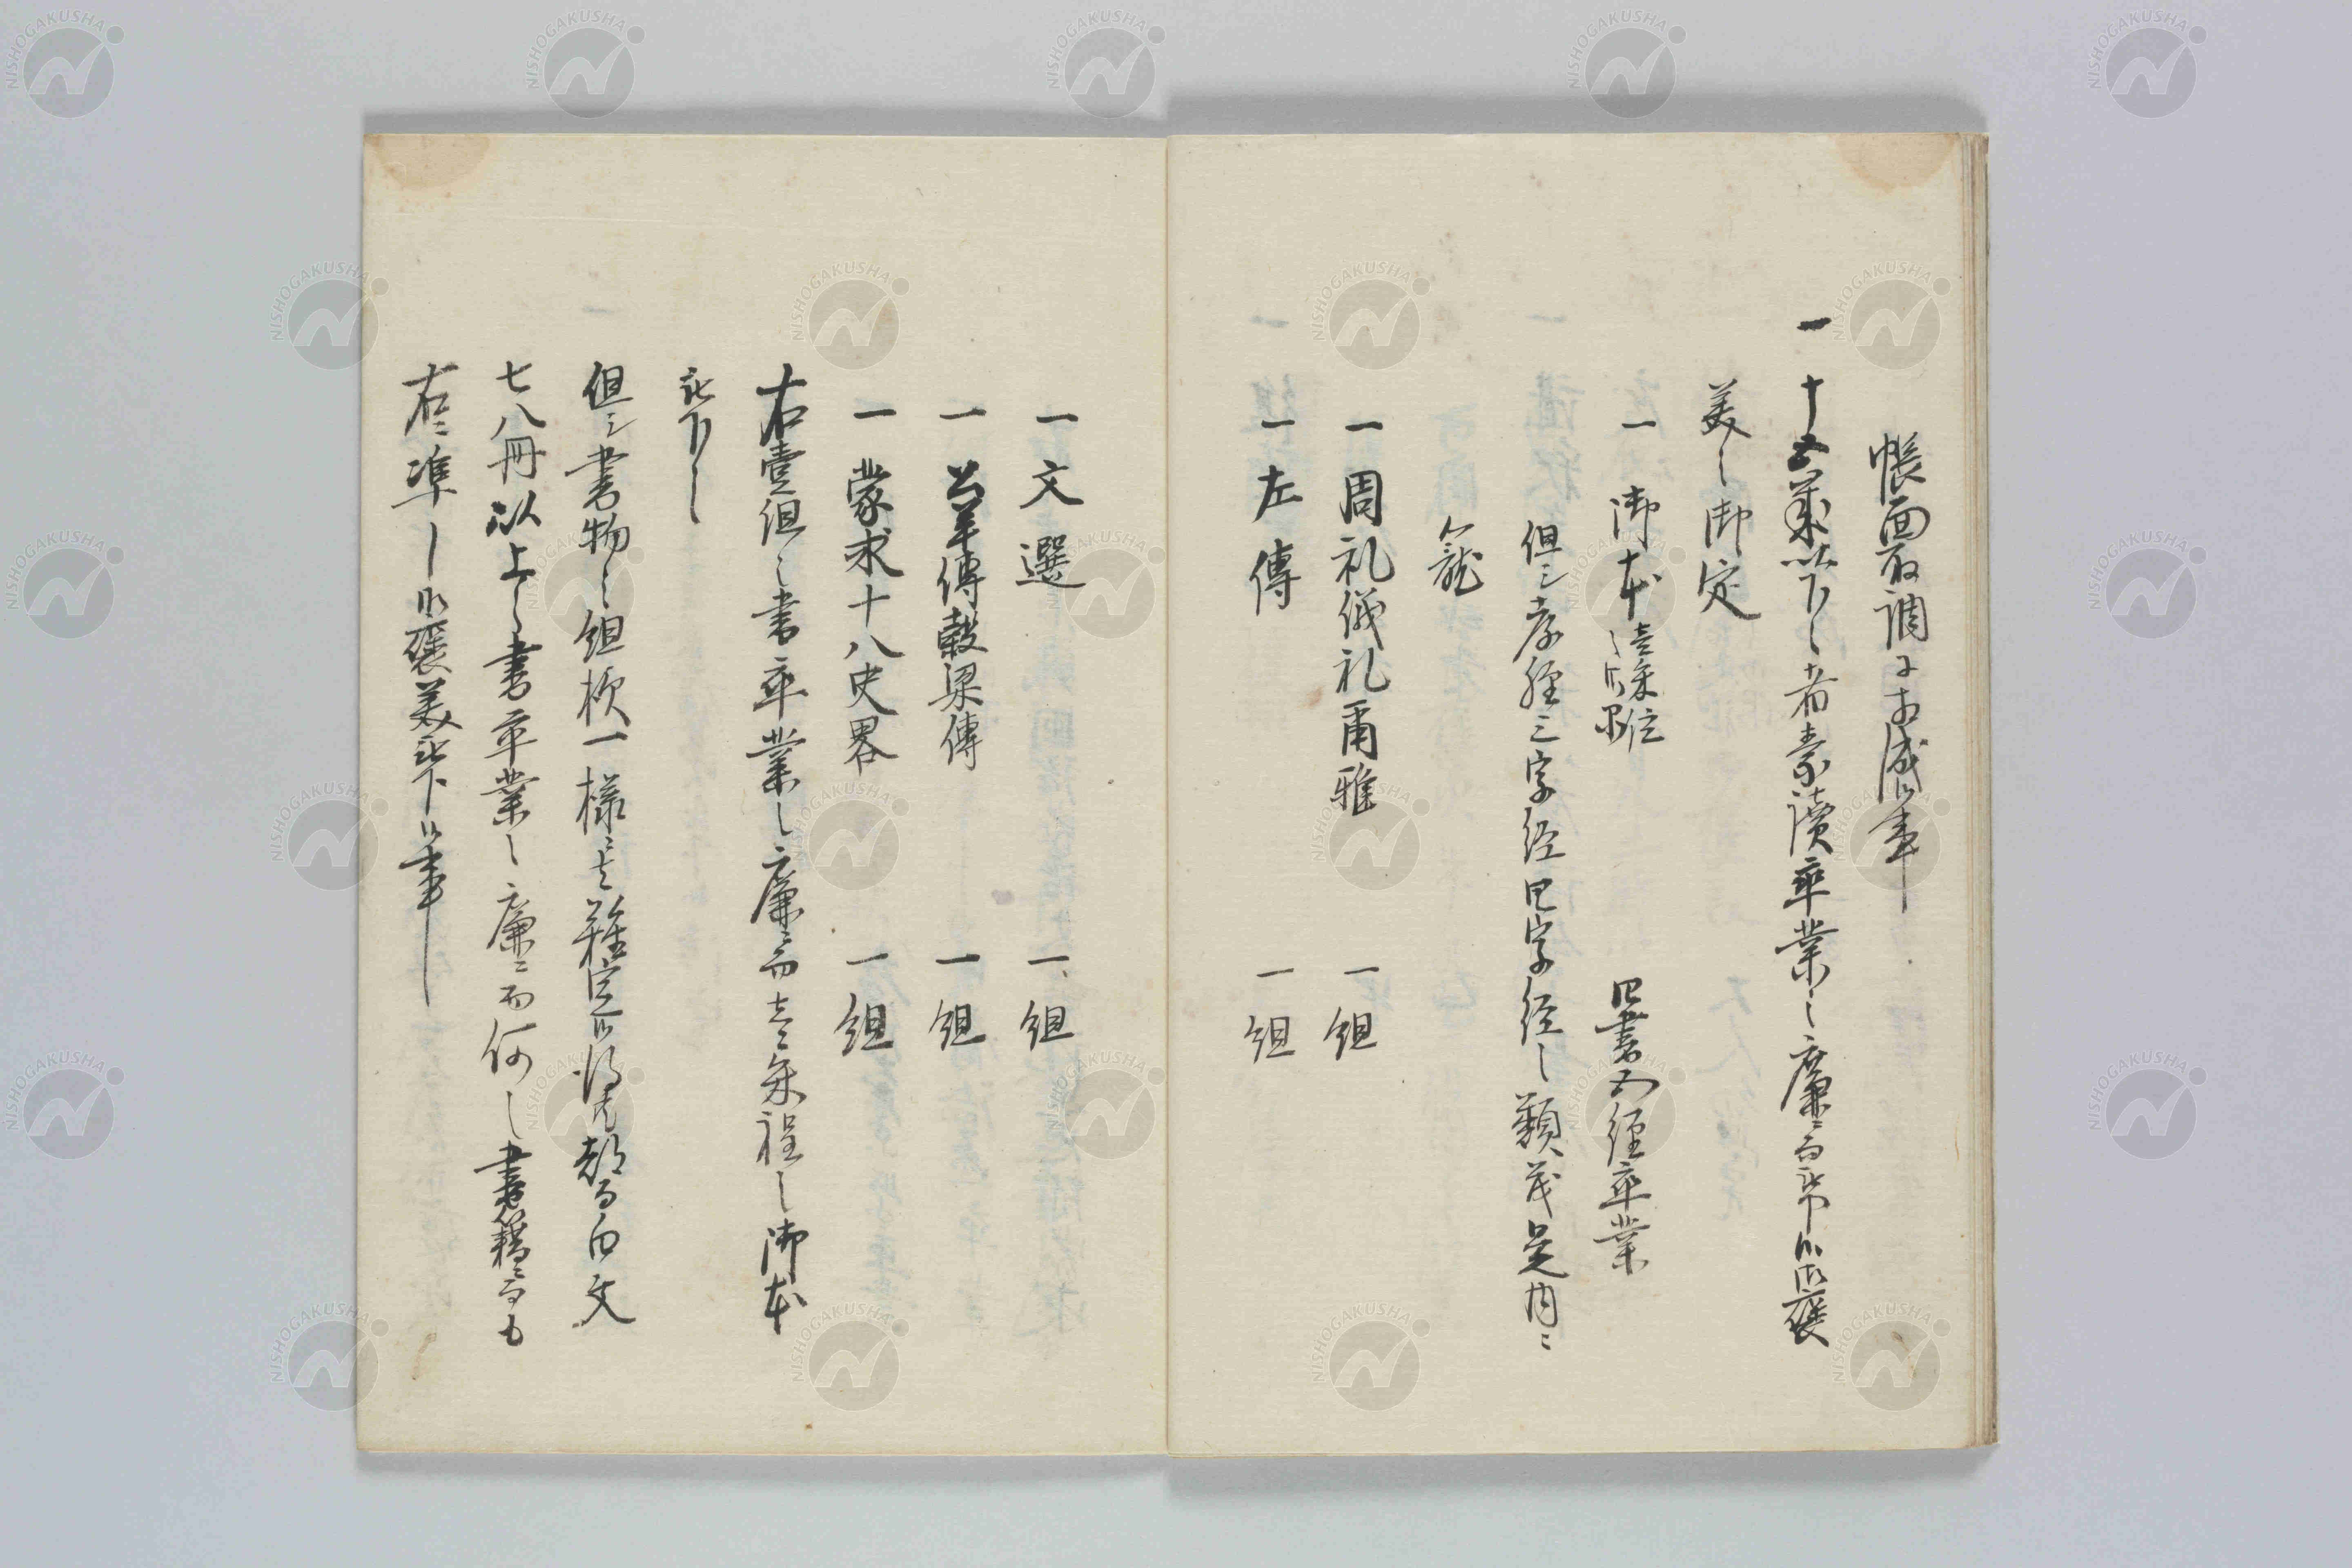 帳面取調可相成事
一 十五歳以下之者素讀卒業之廉ニ而被下御褒
美之御定
一 御本 四書五經卒業
但シ孝經三字経四字経之類茂是内ニ
籠
一 周礼儀礼爾雅 一組
一 左傳 一組
一 文選 一組
一 公羊傳穀梁傳 一組
一 蒙求十八史畧 一組
右壹組之書卒業之廉ニ而壱朱程之御本
被下之
但シ書物之組機一様ニ者難定御得共都而白文
七八冊以上之書卒業之廉ニ而何之書籍ニ而も
右ニ準し御褒美被下候事
NISHOGAKUSHA